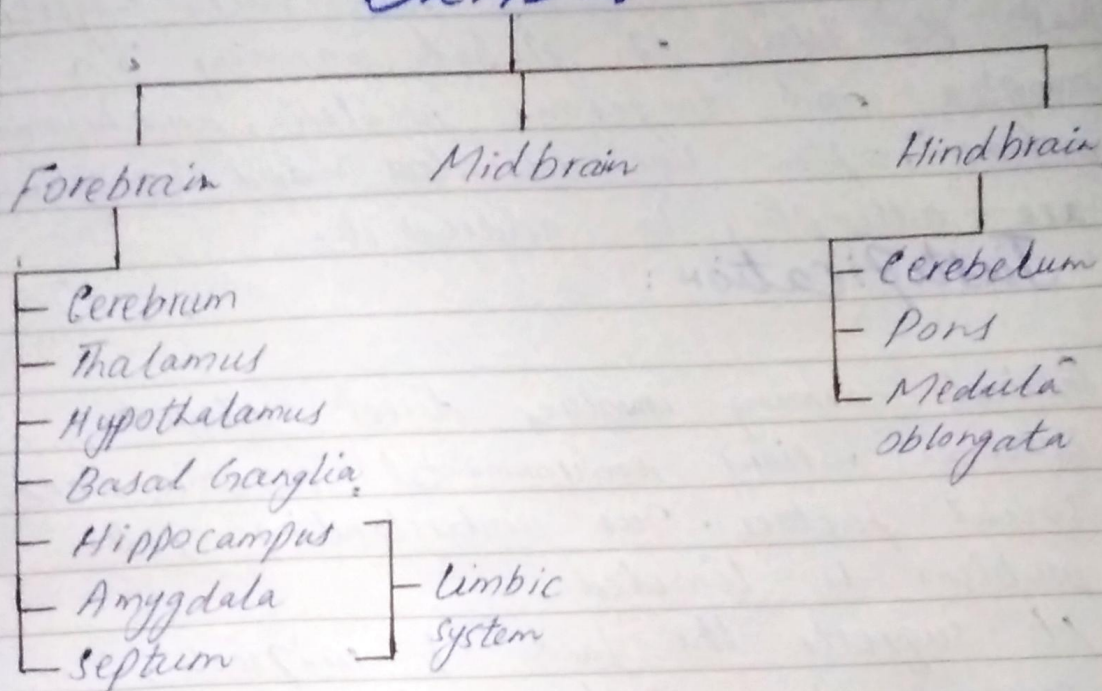 Forebrain Midbrain Hindbrain
Cerebrum
Thalamus
Hypothalamus
Basal Ganglia
Hippocampus
Amygdala
Septum
Limbic
System
Cerebelum
Pons
Medula
oblongata